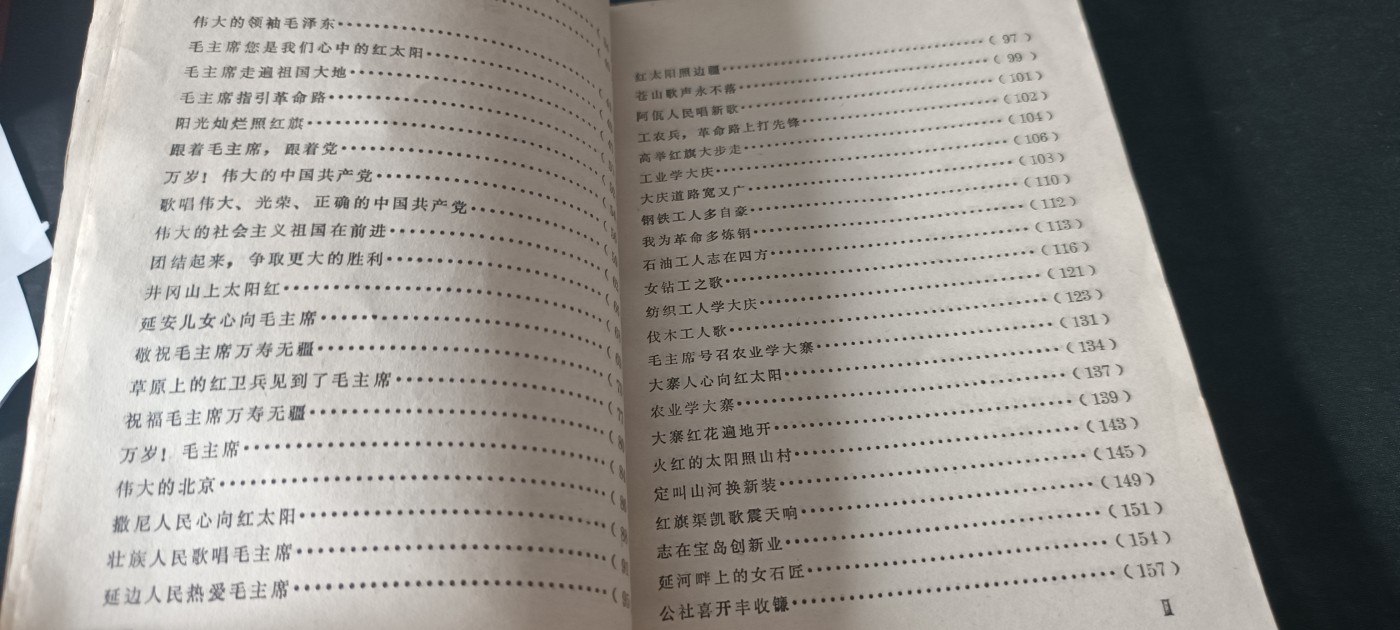 伟大的领袖毛泽东
毛主席您是我们心中的红太阳
毛主席走遍祖国大地
毛主席指引革命路
阳光灿烂照红旗
跟着毛主席，跟着党
万岁！伟大的中国共产党
歌唱伟大、光荣、正确的中国共产党
伟大的社会主义祖国在前进
团结起来，争取更大的胜利
井冈山上太阳红
延安儿女心向毛主席
敬祝毛主席万寿无疆
草原上的红卫兵见到了毛主席
祝福毛主席万寿无疆
万岁！毛主席
伟大的北京
撒尼人民心向红太阳
壮族人民歌唱毛主席
延边人民热爱毛主席
红太阳照边疆……（97）
苍山歌声永不落……（99）
阿佤人民唱新歌……（101）
工农兵，革命路上打先锋……（102）
高举红旗大步走……（104）
工业学大庆……（106）
大庆道路宽又广……（103）
钢铁工人多自豪……（110）
我为革命多炼钢……（112）
石油工人志在四方……（113）
女钻工之歌……（116）
纺织工人学大庆……（121）
伐木工人歌……（123）
毛主席号召农业学大寨……（131）
大寨人心向红太阳……（134）
农业学大寨……（137）
大寨红花遍地开……（139）
火红的太阳照山村……（143）
定叫山河换新装……（145）
红旗渠凯歌震天响……（149）
志在宝岛创新业……（151）
延河畔上的女石匠……（154）
公社喜开丰收镰……（157）